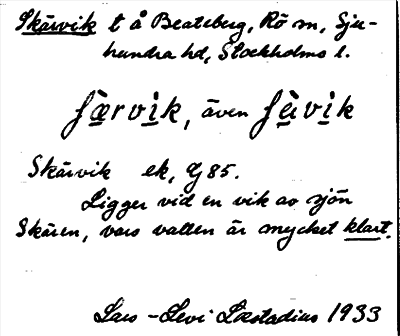 Skärvik t å Beateberg, Rö sn, Sju-
hundra hd, Stockholms l.
ʃæ̀rvi̊k, även ʃæ̀vi̊k
Skärvik ek, G 85.
Ligger vid en vik av sjön
Skären, vars vatten är mycket klart.
Lars-Levi Læstadius 1933